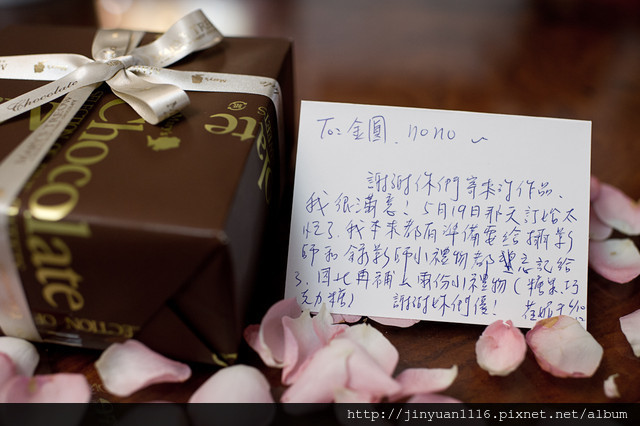 Mary's
Chocolate
Chocolate
Chocolate
SELECTION OF
To: 金圓. nono ~
謝謝你們寄來的作品、
我很滿意! 5月19日那天訂婚太
忙了.我本來都有準備要給攝影
師和錄影師小禮物都忘記給
了,因此再補上兩份小禮物(糖果.巧
克力糖) 謝謝妳們優!
http://jinyuan1116.pixnet.net/album